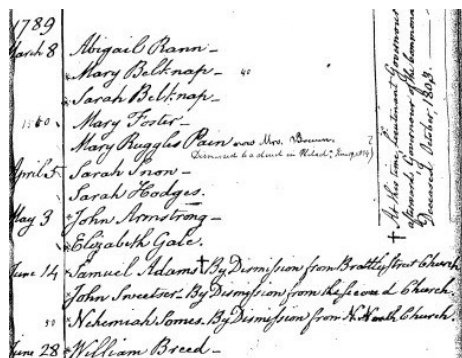 1789
March 8 Abigail Rann -
Mary Belknap - 40
Sarah Belknap -
Mary Foster -
Mary Ruggles Pain now Mrs. Bowen.
Dismissed
April 5 Sarah Snon -
Sarah Hodges.
May 3 John Armstrong -
Elizabeth Gale.
June 14 Samuel Adams † By Dismission from Brattle Street Church
John Sweetser - By Dismission from the second Church
50 Nehemiah Somes. By Dismission from N. North Church.
June 28 William Breed -
† At this time, Lieutenant Governour
afterwards, Governour of the Common
Deceased October, 1803.